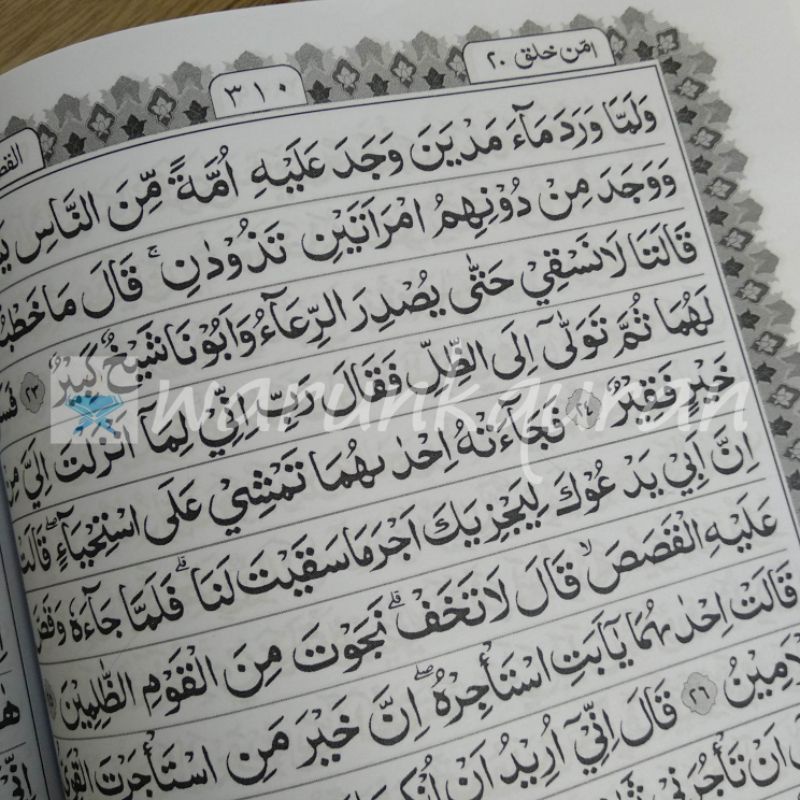 امّن خلق ٢٠
٣١٠
وَلَمَّا وَرَدَ مَآءَ مَدْيَنَ وَجَدَ عَلَيْهِ اُمَّةً مِّنَ النَّاسِ
وَوَجَدَ مِنْ دُوْنِهِمُ امْرَاَتَيْنِ تَذُوْدٰنِ ۚ قَالَ مَا
قَالَتَا لَا نَسْقِيْ حَتّٰى يُصْدِرَ الرِّعَآءُ وَاَبُوْنَا شَيْخٌ كَبِيْرٌ ٢٣
لَهُمَا ثُمَّ تَوَلّٰىٓ اِلَى الظِّلِّ فَقَالَ رَبِّ اِنِّيْ لِمَآ اَنْزَلْتَ اِلَيَّ
خَيْرٍ فَقِيْرٌ ٢٤ فَجَآءَتْهُ اِحْدٰىهُمَا تَمْشِيْ عَلَى اسْتِحْيَآءٍ ۖ قَالَتْ
اِنَّ اَبِيْ يَدْعُوْكَ لِيَجْزِيَكَ اَجْرَ مَا سَقَيْتَ لَنَا ۗ فَلَمَّا جَآءَهٗ وَقَصَّ
عَلَيْهِ الْقَصَصَ ۙ قَالَ لَا تَخَفْ ۗ نَجَوْتَ مِنَ الْقَوْمِ الظّٰلِمِيْنَ
قَالَتْ اِحْدٰىهُمَا يٰٓاَبَتِ اسْتَأْجِرْهُ ۖ اِنَّ خَيْرَ مَنِ اسْتَأْجَرْتَ الْقَوِيُّ
٢٦ قَالَ اِنِّيْٓ اُرِيْدُ اَنْ
اَنْ تَأْجُرَنِيْ
warunkquran